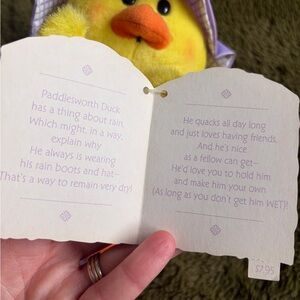 Paddlesworth Duck
has a thing about rain,
Which might, in a way,
explain why
He always is wearing
his rain boots and hat—
That's a way to remain very dry!
He quacks all day long
and just loves having friends,
And he's nice
as a fellow can get—
He'd love you to hold him
and make him your own
(As long as you don't get him WET)!
$7.95